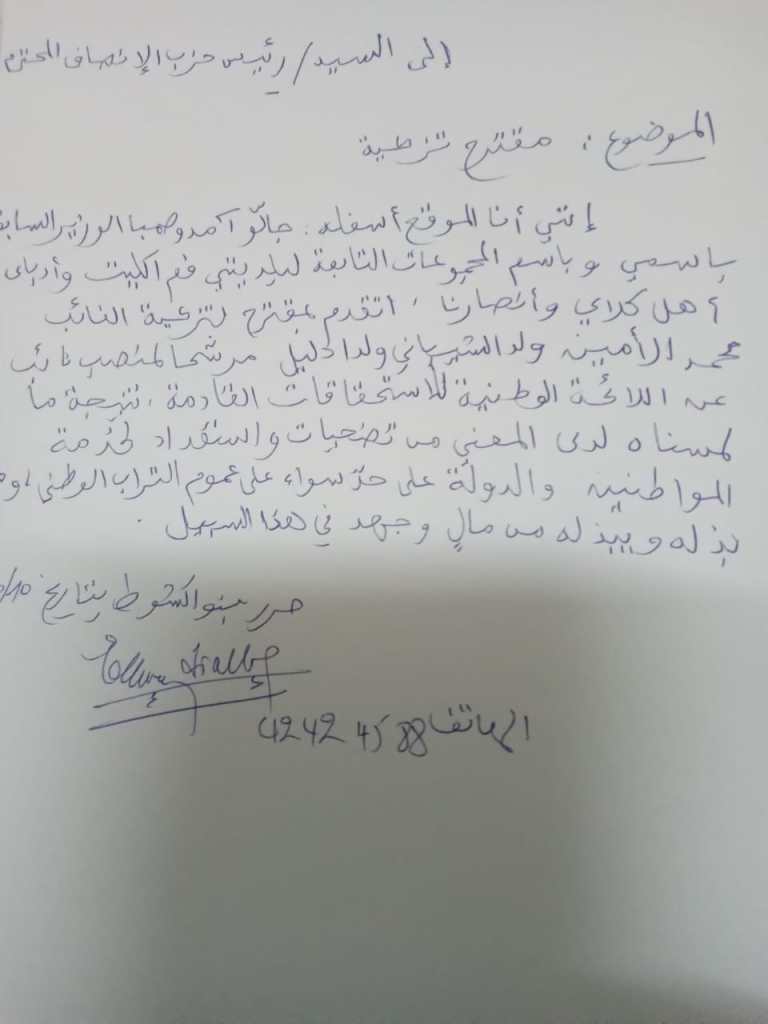 إلى السيد/ رئيس حزب الإنصاف المحترم
الموضوع: مقترح تزكية
إنني أنا الموقع أسفله: جالّو آمدو صمبا الوزير السابق
باسمي وباسم المجموعات التابعة لبلديتي فم اكليت وأدباي
أهل كلاي وأنصارنا، أتقدم بمقترح لتزكية النائب
محمد الأمين ولد الشيباني ولد ادليل مرشحا لمنصب نائب
عن اللائحة الوطنية للاستحقاقات القادمة، نتيجة ما
لمسناه لدى المعني من تضحيات واستعداد لخدمة
المواطنين والدولة على حدّ سواء على عموم التراب الوطني،
بذله ويبذله من مالٍ وجهد في هذا السبيل.
حرر بنواكشوط بتاريخ
الهاتف 42 42 45 88